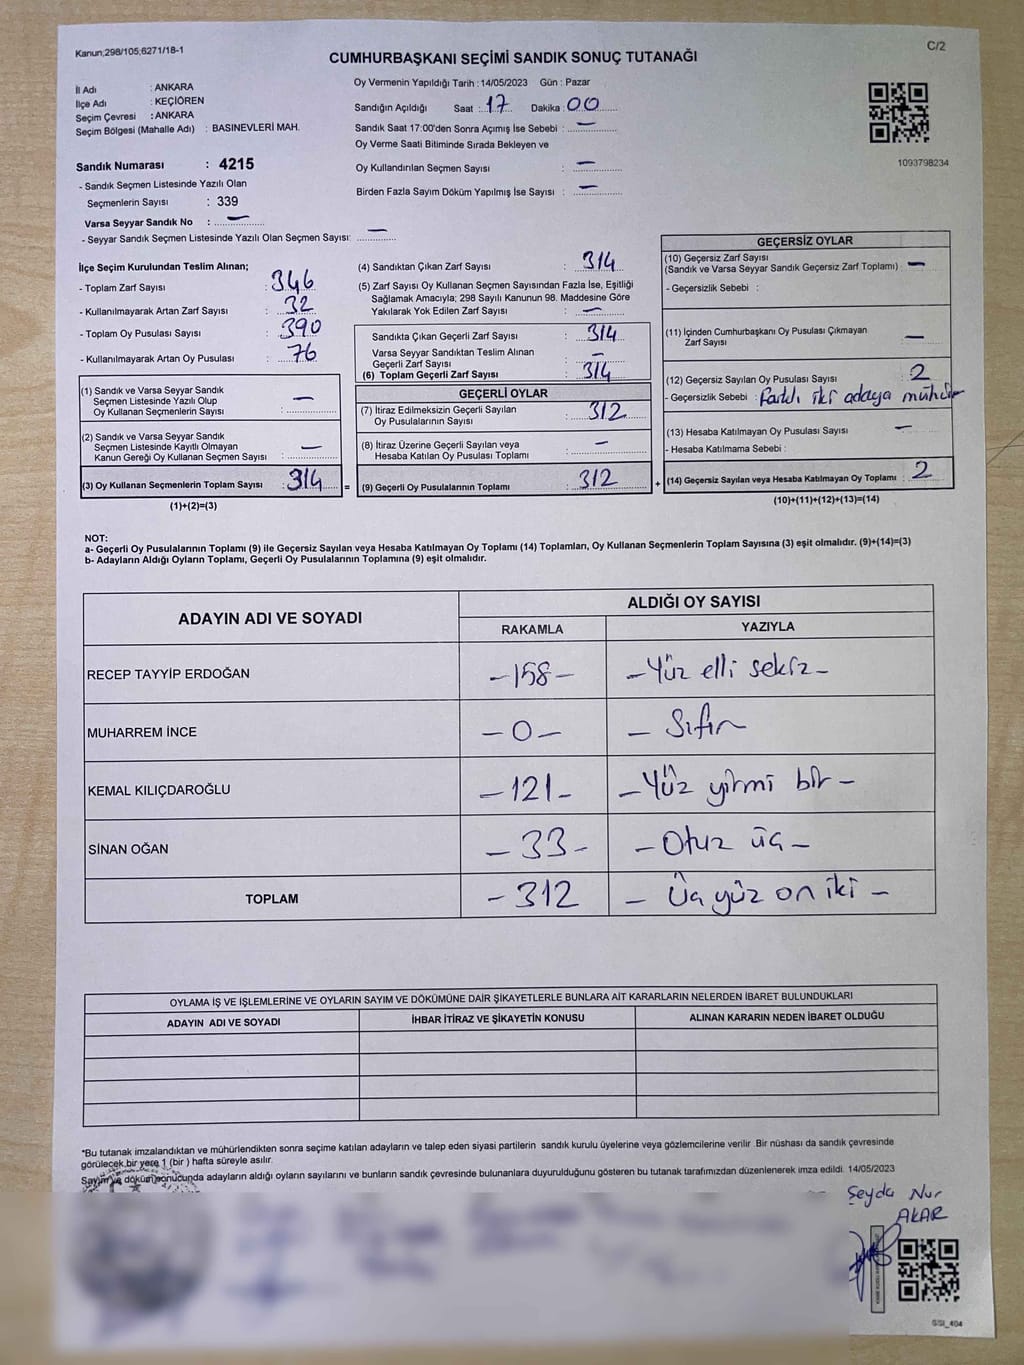 Kanun;298/105;6271/18-1
C/2
CUMHURBAŞKANI SEÇİMİ SANDIK SONUÇ TUTANAĞI
İl Adı : ANKARA
İlçe Adı : KEÇİÖREN
Seçim Çevresi : ANKARA
Seçim Bölgesi (Mahalle Adı) : BASINEVLERİ MAH.
Sandık Numarası : 4215
- Sandık Seçmen Listesinde Yazılı Olan
Seçmenlerin Sayısı : 339
Varsa Seyyar Sandık No : —
- Seyyar Sandık Seçmen Listesinde Yazılı Olan Seçmen Sayısı: —
Oy Vermenin Yapıldığı Tarih : 14/05/2023 Gün : Pazar
Sandığın Açıldığı Saat : 17 Dakika : 00
Sandık Saat 17:00'den Sonra Açımış İse Sebebi : —
Oy Verme Saati Bitiminde Sırada Bekleyen ve
Oy Kullandırılan Seçmen Sayısı : —
Birden Fazla Sayım Döküm Yapılmış İse Sayısı : —
1093798234
İlçe Seçim Kurulundan Teslim Alınan;
- Toplam Zarf Sayısı : 346
- Kullanılmayarak Artan Zarf Sayısı : 32
- Toplam Oy Pusulası Sayısı : 390
- Kullanılmayarak Artan Oy Pusulası : 76
(1) Sandık ve Varsa Seyyar Sandık
Seçmen Listesinde Yazılı Olup
Oy Kullanan Seçmenlerin Sayısı : —
(2) Sandık ve Varsa Seyyar Sandık
Seçmen Listesinde Kayıtlı Olmayan
Kanun Gereği Oy Kullanan Seçmen Sayısı : —
(3) Oy Kullanan Seçmenlerin Toplam Sayısı : 314 =
(1)+(2)=(3)
(4) Sandıktan Çıkan Zarf Sayısı : 314
(5) Zarf Sayısı Oy Kullanan Seçmen Sayısından Fazla İse, Eşitliği
Sağlamak Amacıyla; 298 Sayılı Kanunun 98. Maddesine Göre
Yakılarak Yok Edilen Zarf Sayısı : —
Sandıkta Çıkan Geçerli Zarf Sayısı : 314
Varsa Seyyar Sandıktan Teslim Alınan
Geçerli Zarf Sayısı : —
(6) Toplam Geçerli Zarf Sayısı : 314
GEÇERLİ OYLAR
(7) İtiraz Edilmeksizin Geçerli Sayılan
Oy Pusulalarının Sayısı : 312
(8) İtiraz Üzerine Geçerli Sayılan veya
Hesaba Katılan Oy Pusulası Toplamı : —
(9) Geçerli Oy Pusulalarının Toplamı : 312 +
GEÇERSİZ OYLAR
(10) Geçersiz Zarf Sayısı
(Sandık ve Varsa Seyyar Sandık Geçersiz Zarf Toplamı) : —
- Geçersizlik Sebebi :
(11) İçinden Cumhurbaşkanı Oy Pusulası Çıkmayan
Zarf Sayısı : —
(12) Geçersiz Sayılan Oy Pusulası Sayısı : 2
- Geçersizlik Sebebi : Farklı iki adaya mühür
(13) Hesaba Katılmayan Oy Pusulası Sayısı : —
- Hesaba Katılmama Sebebi :
(14) Geçersiz Sayılan veya Hesaba Katılmayan Oy Toplamı : 2
(10)+(11)+(12)+(13)=(14)
NOT:
a- Geçerli Oy Pusulalarının Toplamı (9) ile Geçersiz Sayılan veya Hesaba Katılmayan Oy Toplamı (14) Toplamları, Oy Kullanan Seçmenlerin Toplam Sayısına (3) eşit olmalıdır. (9)+(14)=(3)
b- Adayların Aldığı Oyların Toplamı, Geçerli Oy Pusulalarının Toplamına (9) eşit olmalıdır.
ADAYIN ADI VE SOYADI ALDIĞI OY SAYISI
RAKAMLA YAZIYLA
RECEP TAYYİP ERDOĞAN -158- -Yüz elli sekiz-
MUHARREM İNCE -0- - Sıfır
KEMAL KILIÇDAROĞLU -121- -Yüz yirmi bir-
SİNAN OĞAN -33- -Otuz üç-
TOPLAM -312 - Üç yüz on iki -
OYLAMA İŞ VE İŞLEMLERİNE VE OYLARIN SAYIM VE DÖKÜMÜNE DAİR ŞİKAYETLERLE BUNLARA AİT KARARLARIN NELERDEN İBARET BULUNDUKLARI
ADAYIN ADI VE SOYADI İHBAR İTİRAZ VE ŞİKAYETİN KONUSU ALINAN KARARIN NEDEN İBARET OLDUĞU
*Bu tutanak imzalandıktan ve mühürlendikten sonra seçime katılan adayların ve talep eden siyasi partilerin sandık kurulu üyelerine veya gözlemcilerine verilir .Bir nüshası da sandık çevresinde
görülecek bir yere 1 (bir ) hafta süreyle asılır.
Sayım ve döküm sonucunda adayların aldığı oyların sayılarını ve bunların sandık çevresinde bulunanlara duyurulduğunu gösteren bu tutanak tarafımızdan düzenlenerek imza edildi. 14/05/2023
Şeyda Nur
AKAR
SSI_404